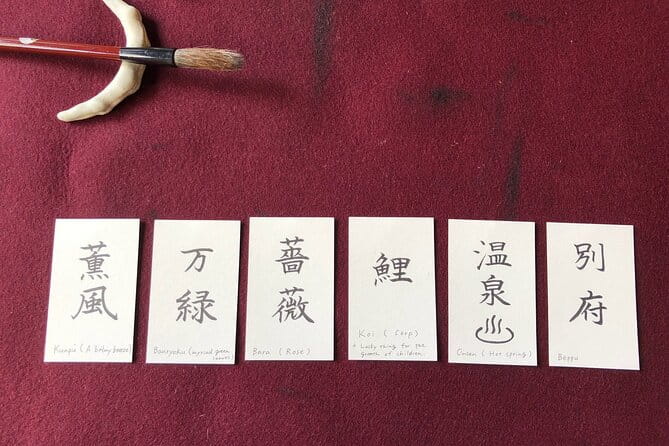 薫風
Kunpū ( A balmy breeze )
万緑
Banryoku ( myriad green
leaves )
薔薇
Bara ( Rose )
鯉
Koi ( Carp )
Lucky thing for the
growth of children.
温泉
♨
Onsen ( Hot spring )
別府
Beppu